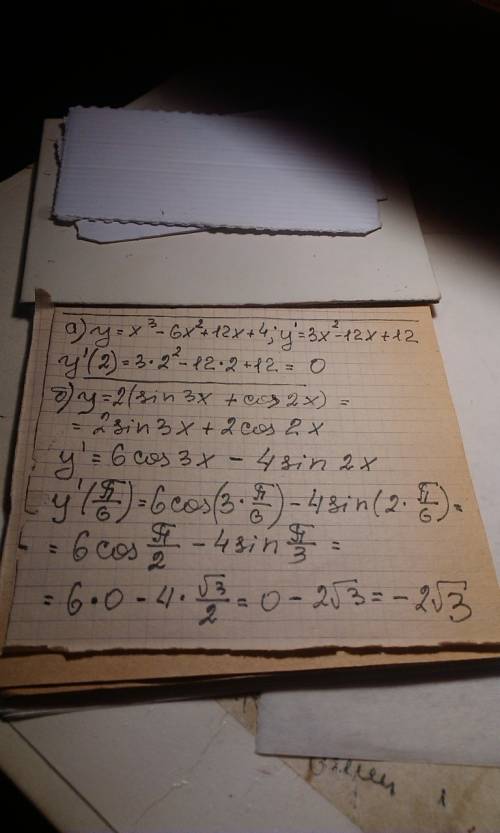 а) y = x³ - 6x² + 12x + 4; y' = 3x² - 12x + 12
y'(2) = 3·2² - 12·2 + 12 = 0
б) y = 2(sin 3x + cos 2x) =
= 2 sin 3x + 2 cos 2x
y' = 6 cos 3x - 4 sin 2x
y'(π/6) = 6 cos(3·π/6) - 4 sin(2·π/6) =
= 6 cos π/2 - 4 sin π/3 =
= 6·0 - 4·√3/2 = 0 - 2√3 = -2√3